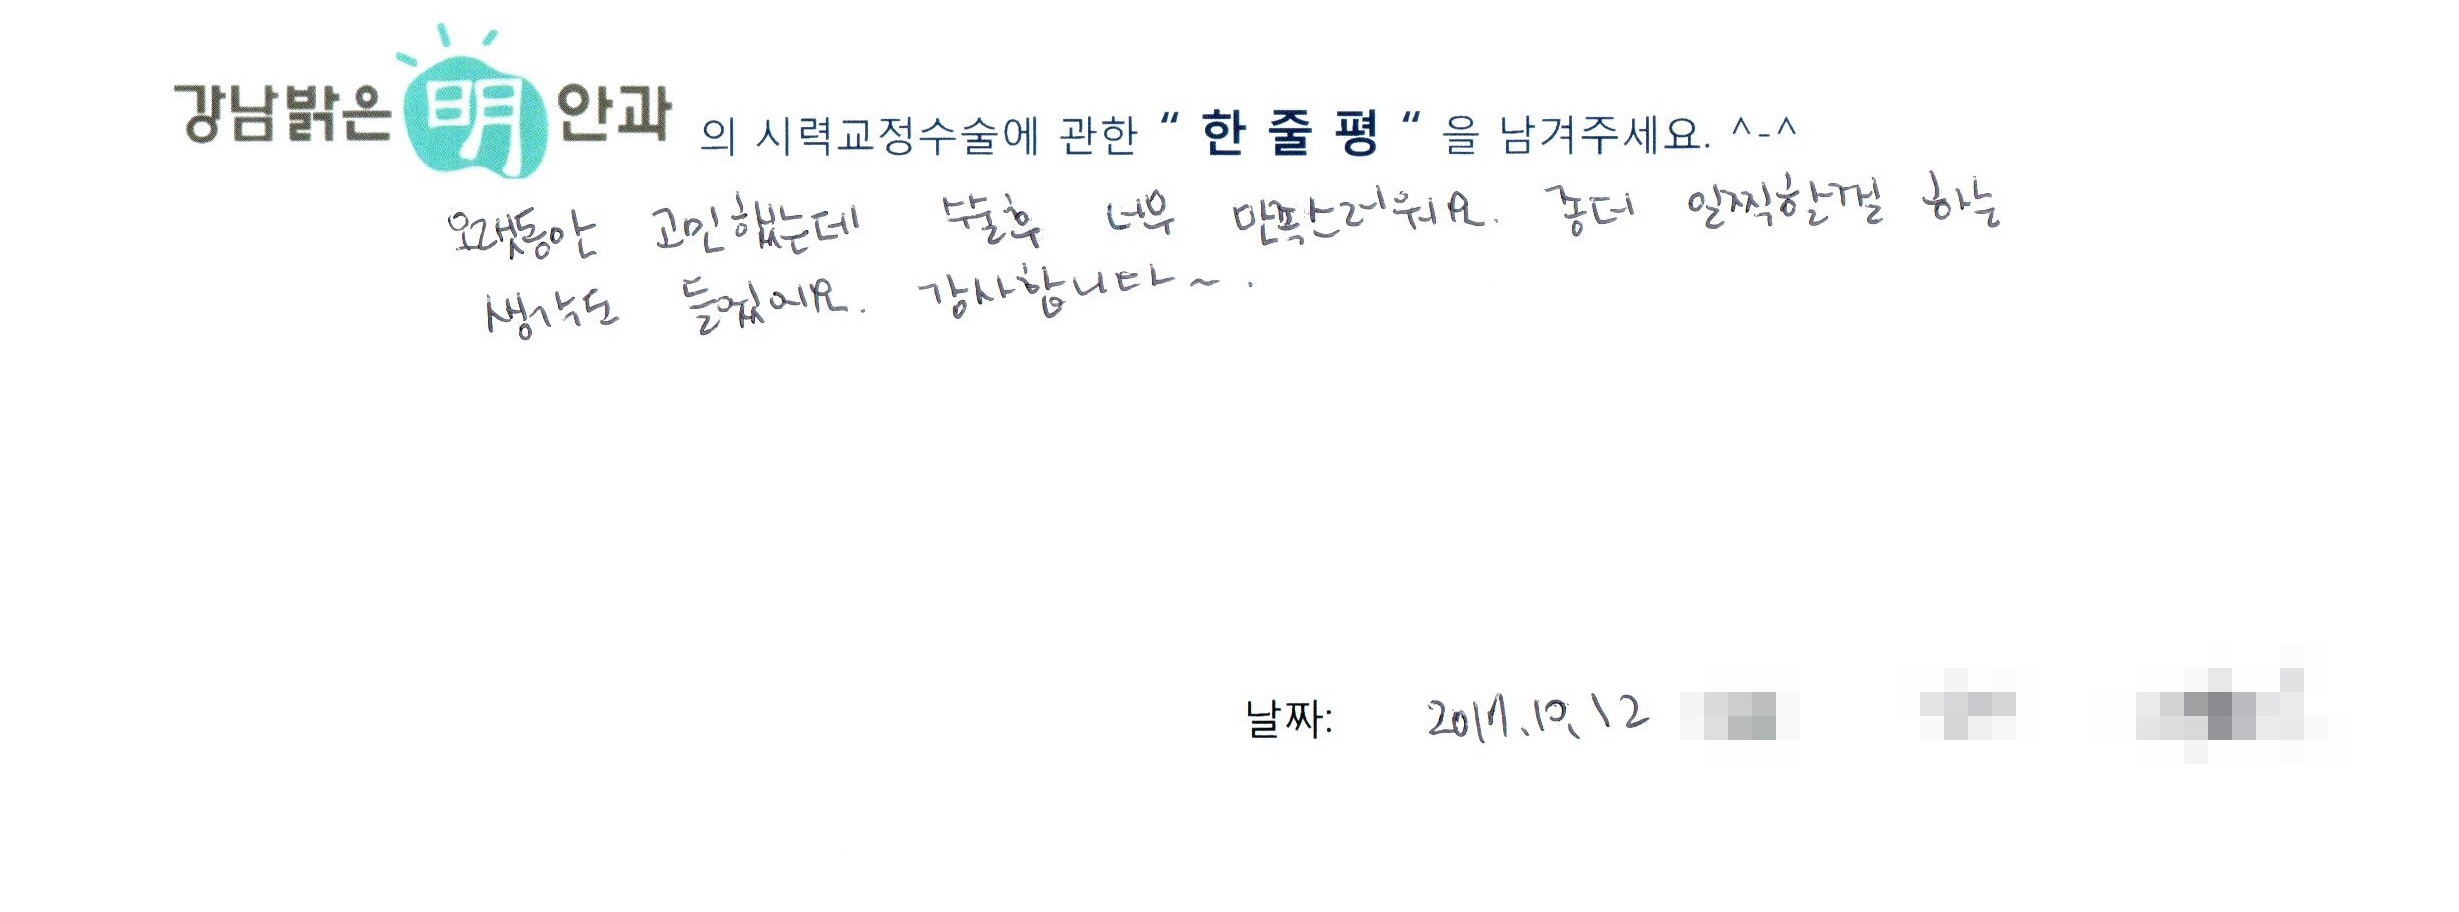 강남밝은 明 안과 의 시력교정수술에 관한 “ 한 줄 평 “ 을 남겨주세요. ^-^
오랫동안 고민했는데 수술후 너무 만족스러워요. 좀더 일찍할껄 하는
생각도 들었어요. 감사합니다~.
날짜: 2017.10.12